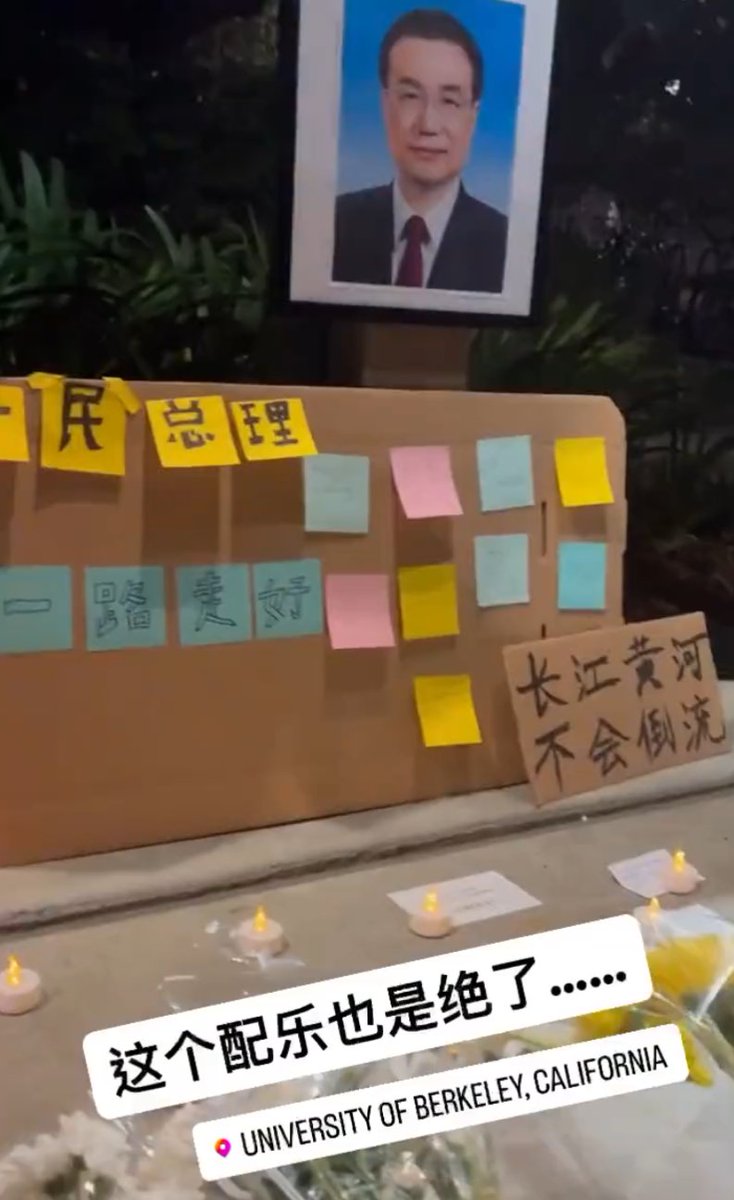 民总理
一路走好
长江黄河
不会倒流
这个配乐也是绝了……
UNIVERSITY OF BERKELEY, CALIFORNIA